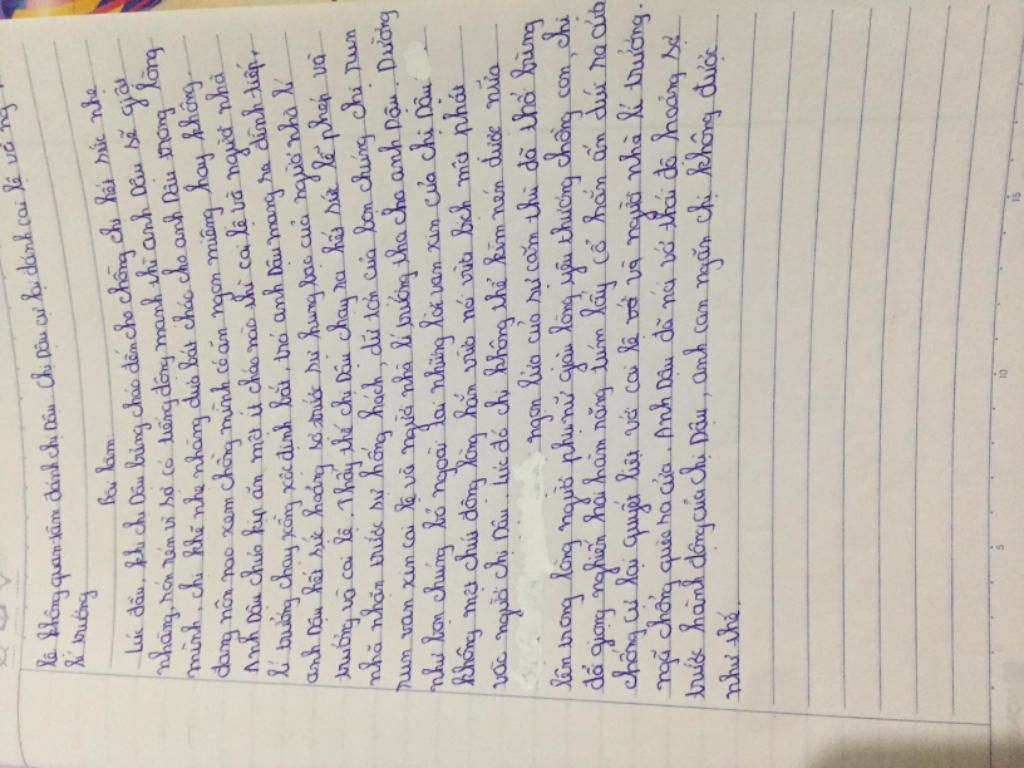 lệ không quan tâm đánh chị Dậu. Chị Dậu cự bị đánh cai lệ và ng
lí trưởng
Bài làm
Lúc đầu, khi chị Dậu bưng cháo đến cho chồng chị hết sức nhẹ
nhàng, rón rén vì sợ có tiếng động mạnh thì anh Dậu sẽ giật
mình, chị khẽ nhẹ nhàng đưa bát cháo cho anh Dậu mong lòng
đang nôn nao xem chồng mình có ăn ngon miệng hay không.
Anh Dậu chưa kịp ăn một ít cháo nào thì cai lệ và người nhà
lí trưởng chạy xồng xộc đánh bắt, trói anh Dậu mang ra đình tiếp,
anh Dậu hết sức hoảng sợ trước sự hung bạo của người nhà lí
trưởng và cai lệ. Thấy thế chị Dậu chạy ra hết sức lễ phép và
nhã nhặn trước sự hống hách, dữ tợn của bọn chúng chị run
run van xin cai lệ và người nhà lí trưởng tha cho anh Dậu. Dường
như bọn chúng bỏ ngoài tai những lời van xin của chị Dậu
không một chút động lòng hắn vừa nói vừa bịch một phát
vào người chị Dậu. Lúc đó chị không thể kìm nén được nữa
ngọn lửa của sự căm thù đã thổi bùng
lên trong lòng người phụ nữ giàu lòng yêu thương chồng con, chị
đổ giọng nghiến hai hàm răng túm lấy cổ hắn ấn dúi ra cửa
chống cự lại quyết liệt với cai lệ và người nhà lí trưởng.
ngã chổng quèo ra cửa. Anh Dậu đã nói với thái độ hoảng sợ
trước hành động của chị Dậu, anh can ngăn chị không được
như thế.